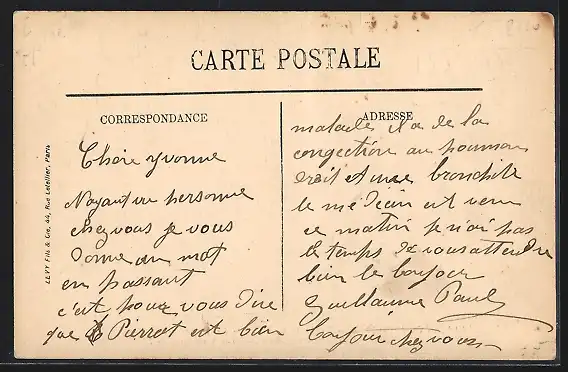 CARTE POSTALE
CORRESPONDANCE
Chère yvonne
Nayant vu personne
chez vous je vous
donne un mot
en passant
c'est pour vous dire
que Pierrot est bien
ADRESSE
malade il a de la
congection au poumon
droit et une bronchite
le médecin est venu
ce matin je n'ai pas
le temps de vous attendre
bien le bonjour
Guillaume Paul
bonjour chez vous
LEVY Fils & Cie, 44, Rue Letellier, Paris